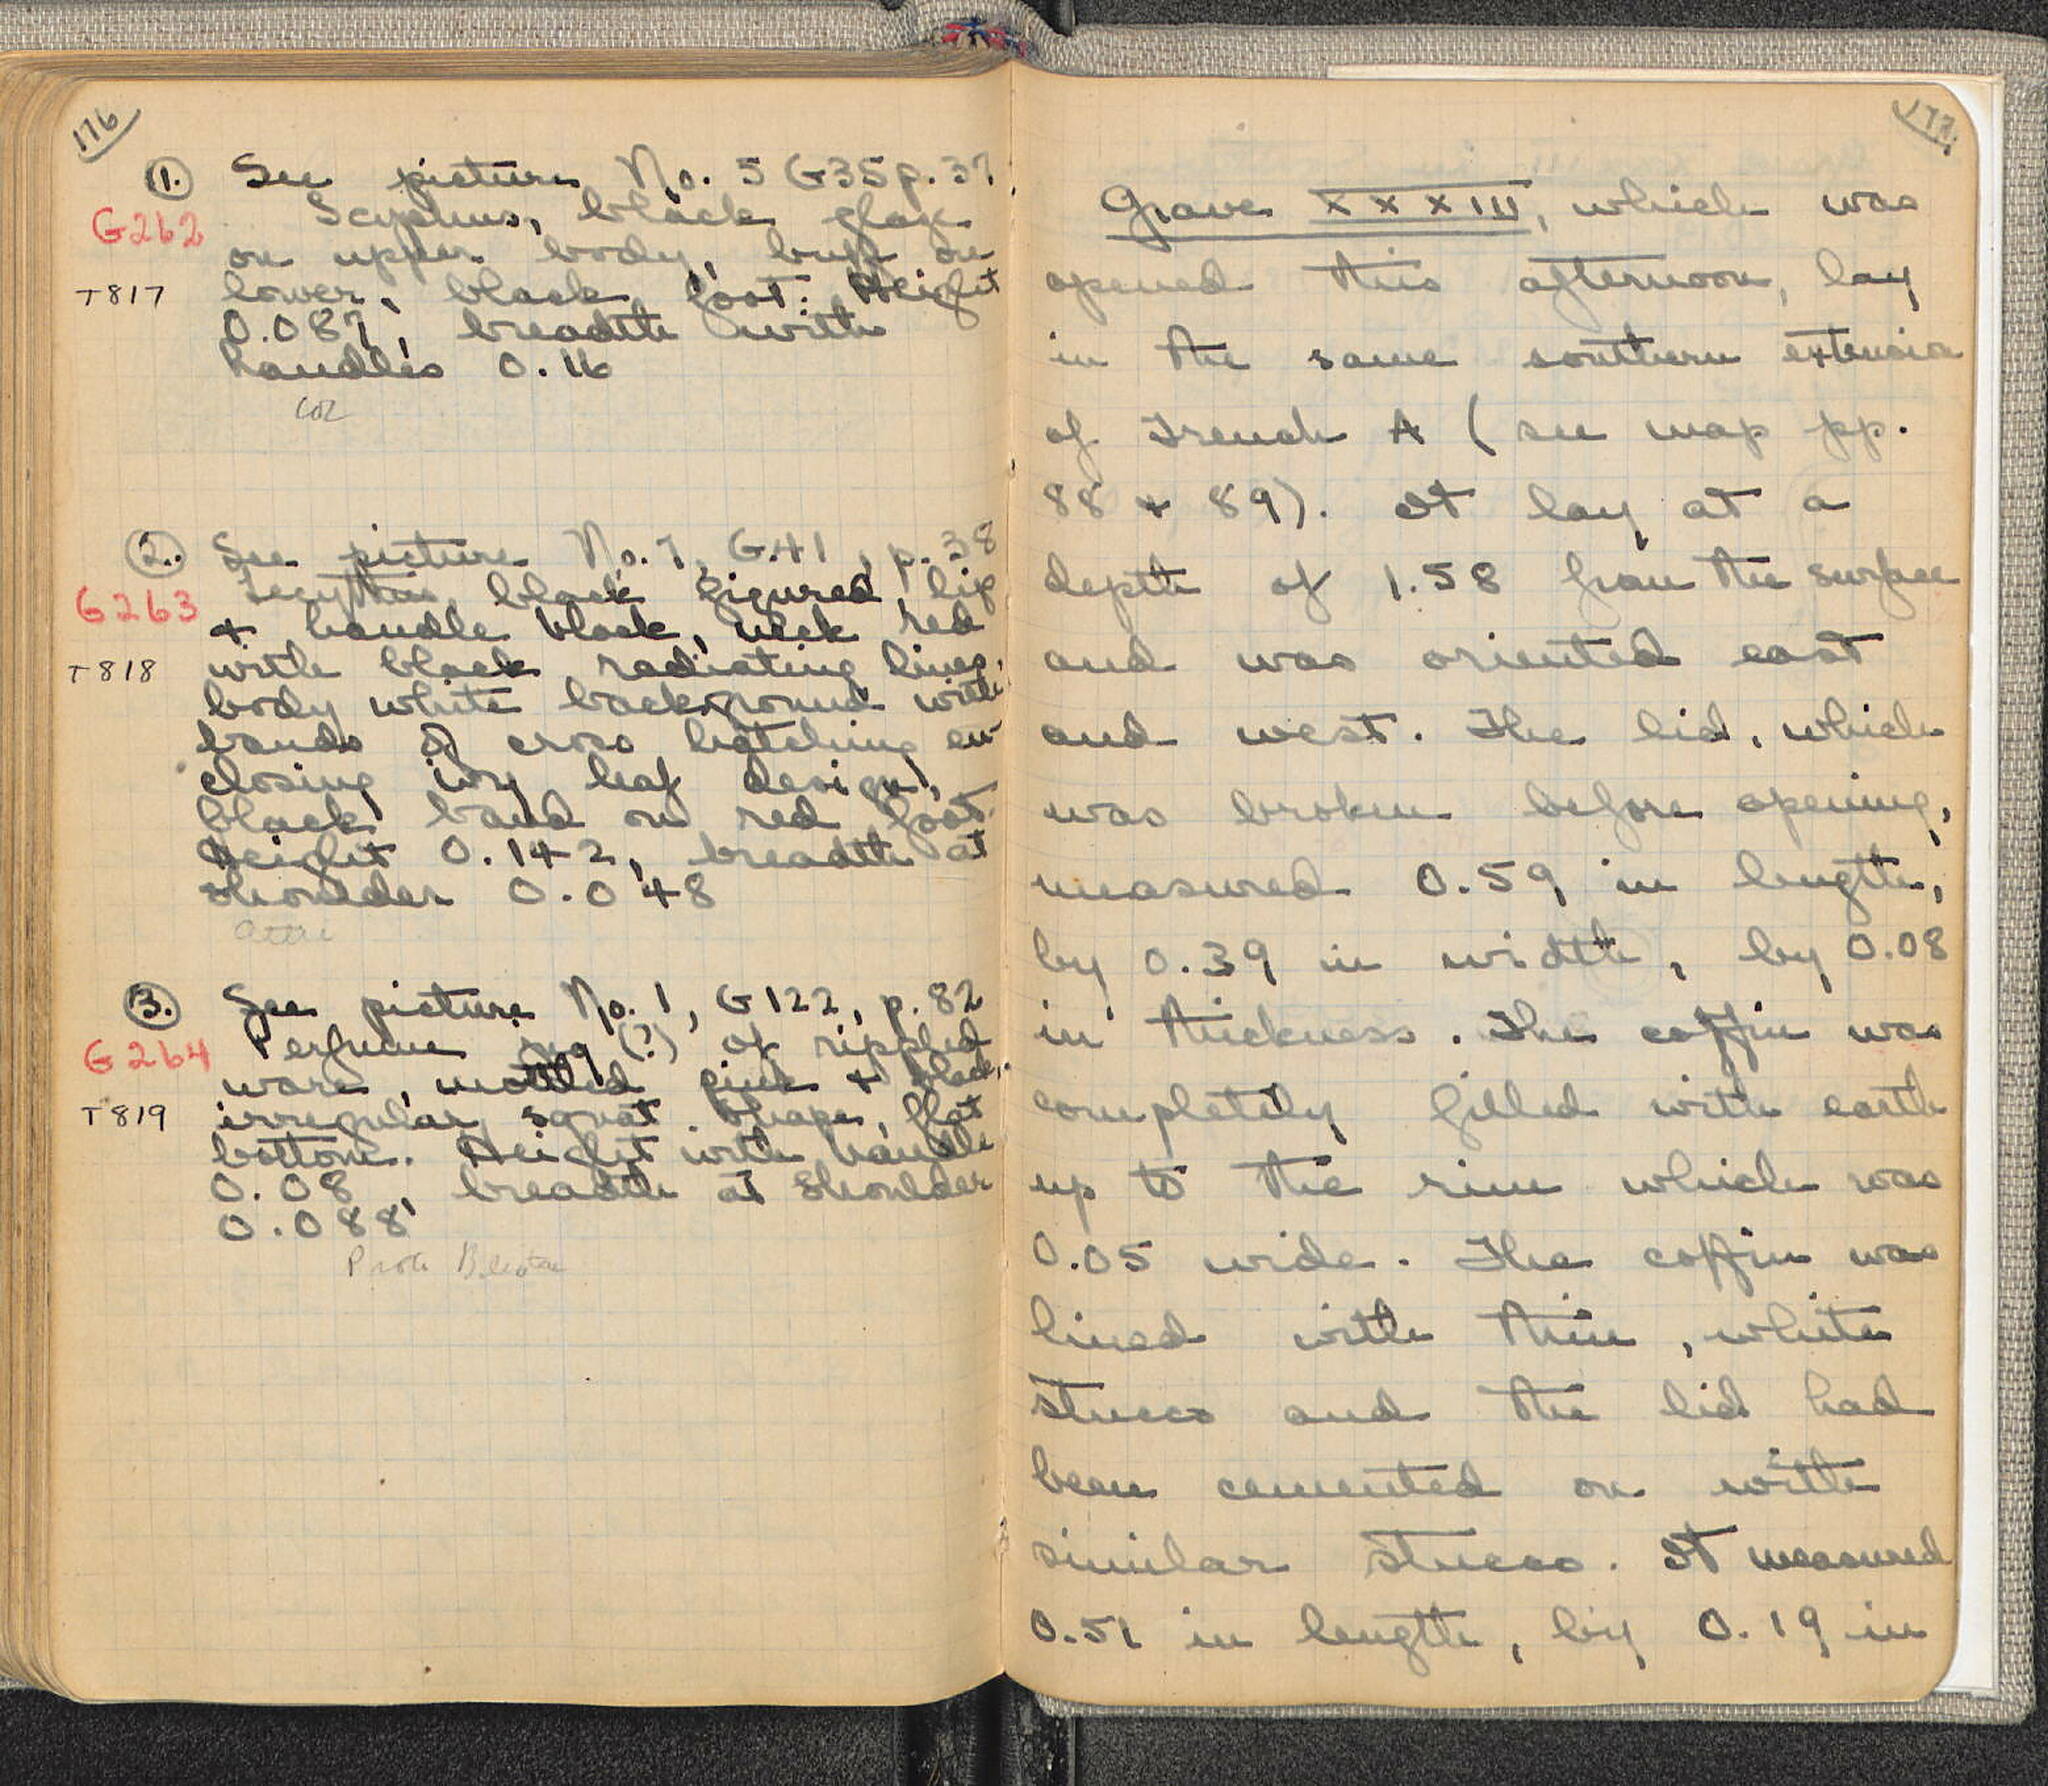 176
1. See picture No. 5 G35 p. 37
G262 Scyphus, black glaze
on upper body, buff on
T817 lower, black foot. Height
0.087, breadth with
handles 0.16
Cor
2. See picture No. 7, G.41, p. 38
G263 Lecythos, black figured, lip
& handle black, neck red
T818 with black radiating lines,
body white background with
bands of cross hatching en
closing ivy leaf design,
black band on red foot.
Height 0.142, breadth at
shoulder 0.048
Attic
3. See picture No. 1, G122, p. 82
G264 Perfume jug (?) of rippled
ware, mottled pink & black,
T819 irregular squat shape, flat
bottom. Height with handle
0.08, breadth at shoulder
0.088
Prob Beotian
177.
Grave XXXIII, which was
opened this afternoon, lay
in the same southern extension
of Trench A (see map pp.
88 & 89). It lay at a
depth of 1.58 from the surface
and was oriented east
and west. The lid, which
was broken before opening,
measured 0.59 in length,
by 0.39 in width, by 0.08
in thickness. The coffin was
completely filled with earth
up to the rim which was
0.05 wide. The coffin was
lined with thin, white
stucco and the lid had
been cemented on with
similar stucco. It measured
0.51 in length, by 0.19 in